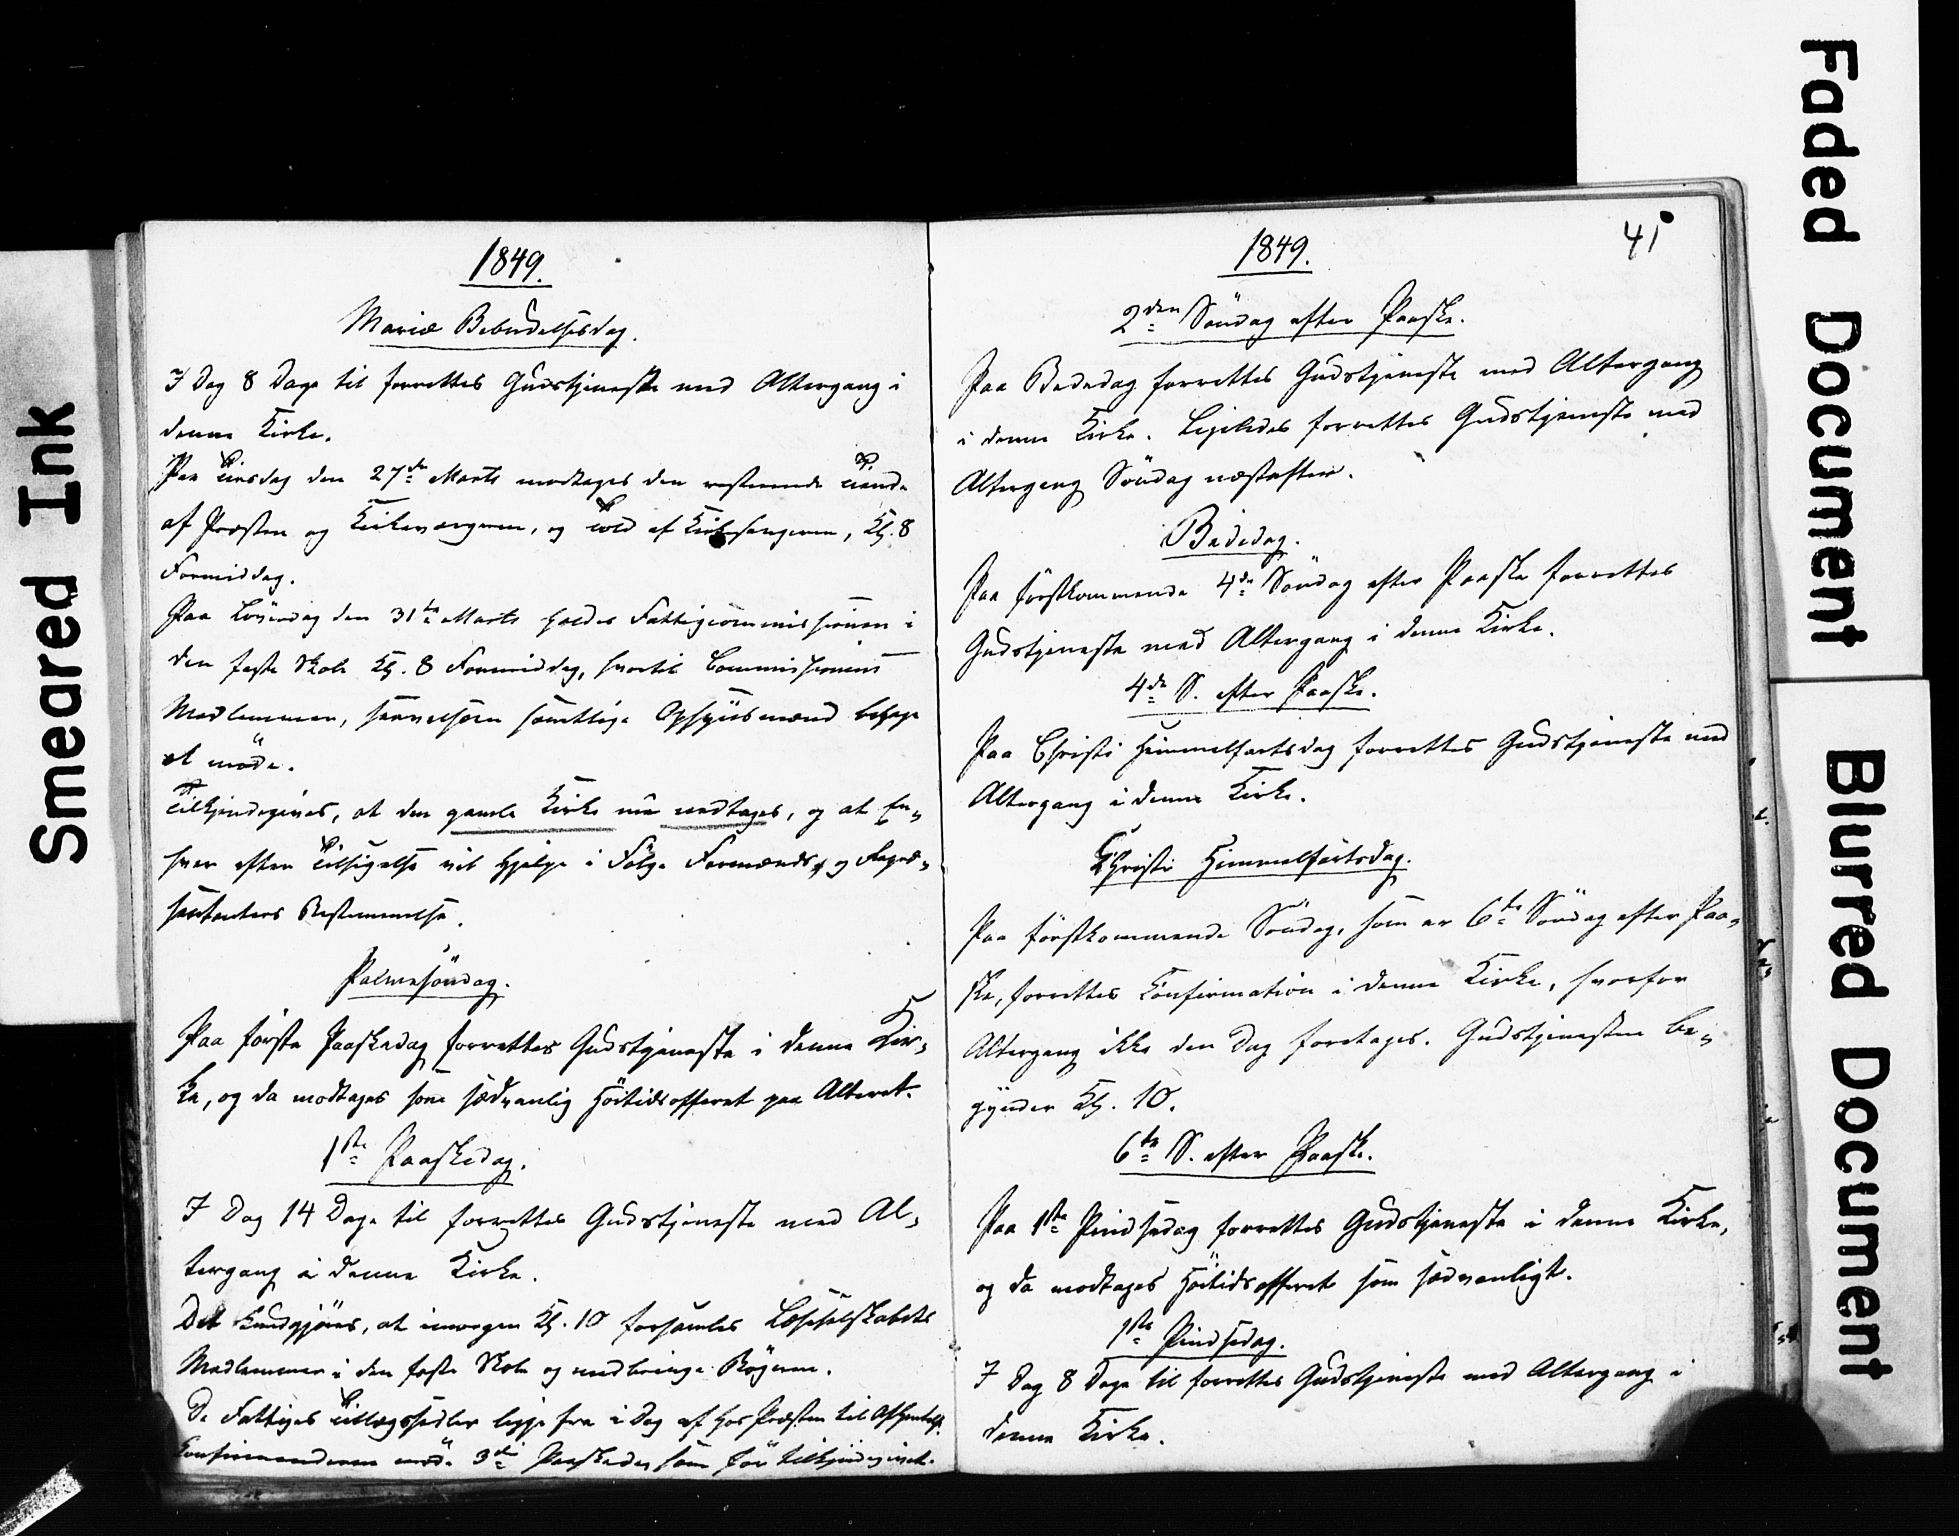 1849.
Mariæ Bebudelsesdag.
I Dag 8 Dage til forrettes Gudstjeneste med Altergang i
denne Kirke.
Paa Tirsdag den 27de Marts modtages den resterende Tiende
af Præsten og Kirkeværgeren, og Told af Kirkesangeren, Kl. 8
Formiddag.
Paa Löverdag den 31te Marts holdes Fattigcommissionen i
den faste Skole Kl. 8 Formiddag, hvortil Commissionens
Medlemmer, saavelsom samtlige Opsynsmænd behage
at möde.
Tilkjendegives, at den gamle Kirke nu nedtages, og at En-
hver efter Tilsigelse vil hjelpe i Fölge Formænds og Repræ-
sentanters Bestemmelse.
Palmesöndag.
Paa förste Paaskedag forrettes Gudstjeneste i denne Kir-
ke, og da modtages som sædvanlig Höitidsofferet paa Alteret.
1ste Paaskedag.
I Dag 14 Dage til forrettes Gudstjeneste med Al-
tergang i denne Kirke.
Det kundgjöres, at imorgen Kl. 10 forsamles Læseselskabets
Medlemmer i den faste Skole og medbringe Bögerne.
De Fattiges Tillægssedler ligge fra i Dag af hos Præsten til Afhentelse.
Confirmanderne möde 3die Paaskedag som för tilkjendegivet.
1849.
41
2den Söndag efter Paaske.
Paa Bededag forrettes Gudstjeneste med Altergang
i denne Kirke. Ligeledes forrettes Gudstjeneste med
Altergang Söndag næstefter.
Bededag.
Paa förstkommende 4de Söndag efter Paaske forrettes
Gudstjeneste med Altergang i denne Kirke.
4de S. efter Paaske.
Paa Christi Himmelfartsdag forrettes Gudstjeneste med
Altergang i denne Kirke.
Christi Himmelfartsdag.
Paa förstkommende Söndag, som er 6te Söndag efter Paa-
ske, forrettes Confirmation i denne Kirke, hvorfor
Altergang ikke den Dag foretages. Gudstjenesten be-
gynder Kl. 10.
6te S. efter Paaske.
Paa 1ste Pindsedag forrettes Gudstjeneste i denne Kirke,
og da modtages Höitidsofferet som sædvanligt.
1ste Pindsedag.
I Dag 8 Dage til forrettes Gudstjeneste med Altergang i
denne Kirke.
Smeared Ink
Faded Document
Blurred Document